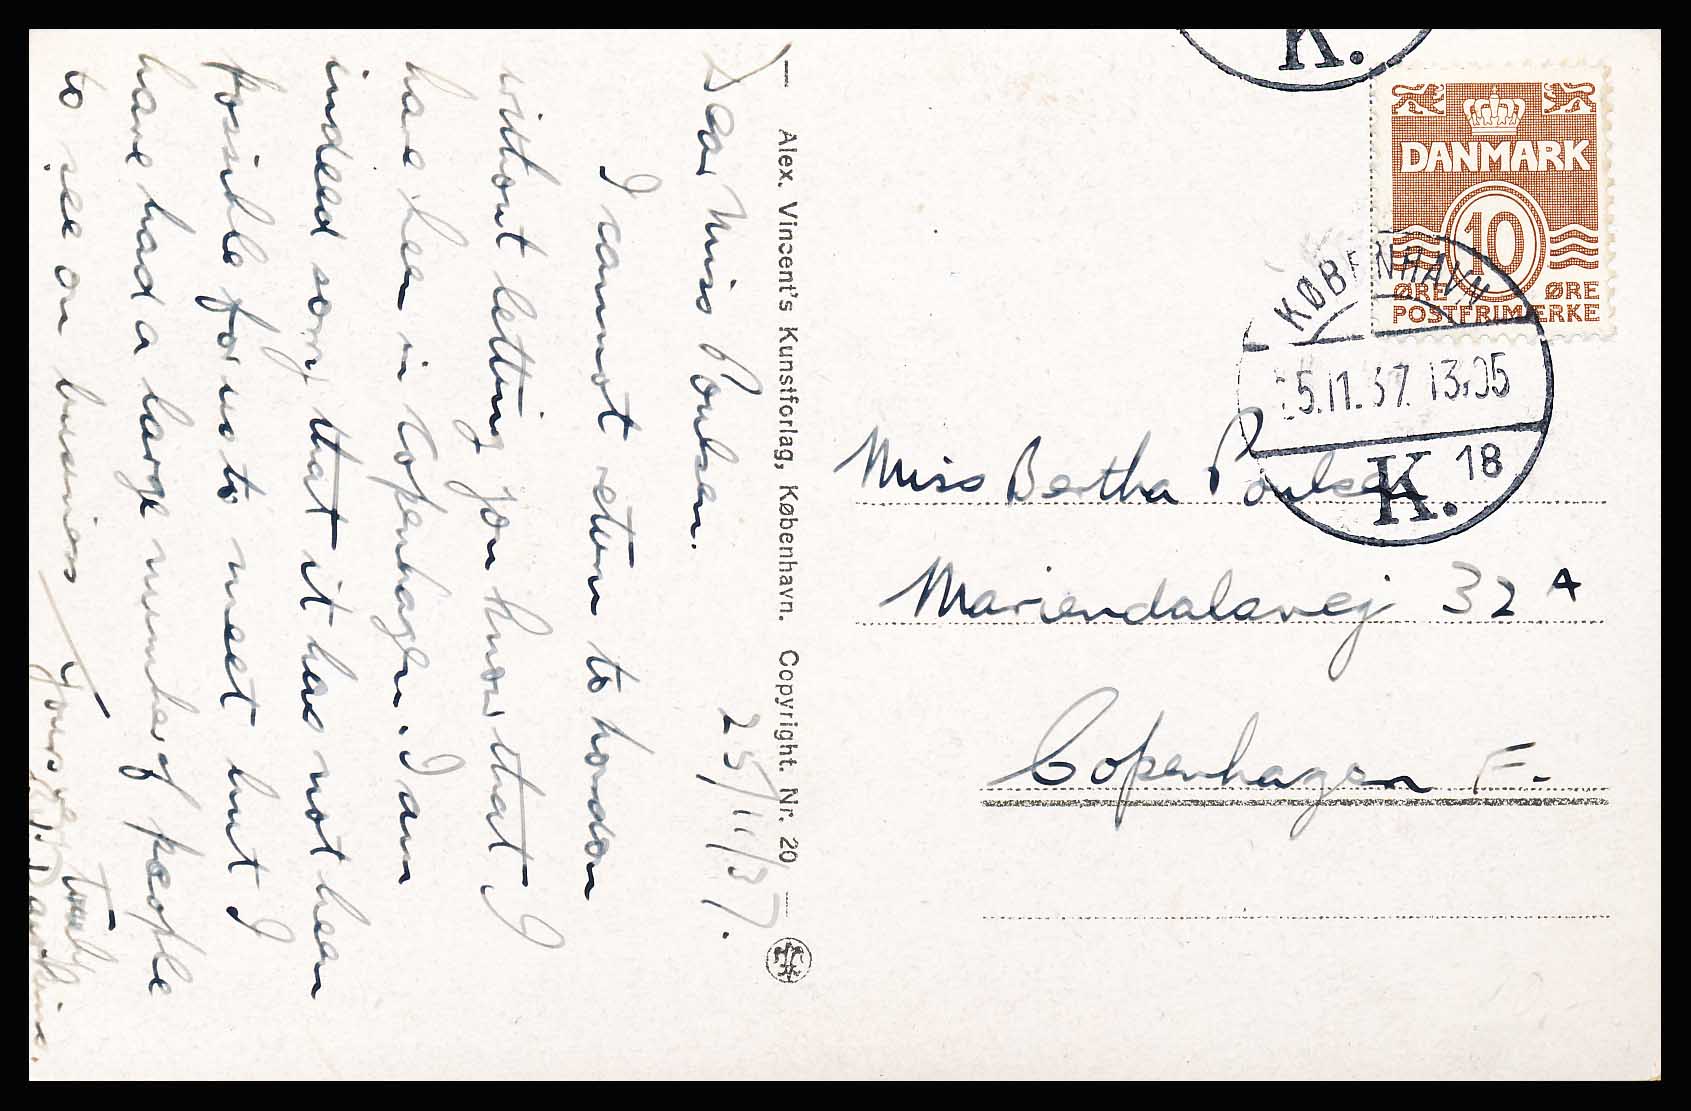 25/11/37.
Dear Miss Poulsen.
I cannot return to London
without letting you know that I
have been in Copenhagen. I am
indeed sorry that it has not been
possible for us to meet but I
have had a large number of people
to see on business
Yours very truly
Alex. Vincent's Kunstforlag, København. Copyright. Nr. 20
K.
DANMARK
10
ØRE ØRE
POSTFRIMÆRKE
KØBENHAVN
25.11.37. 13.05
K. 18
Miss Bertha Poulsen
Mariendalsvej 32 A
Copenhagen F.